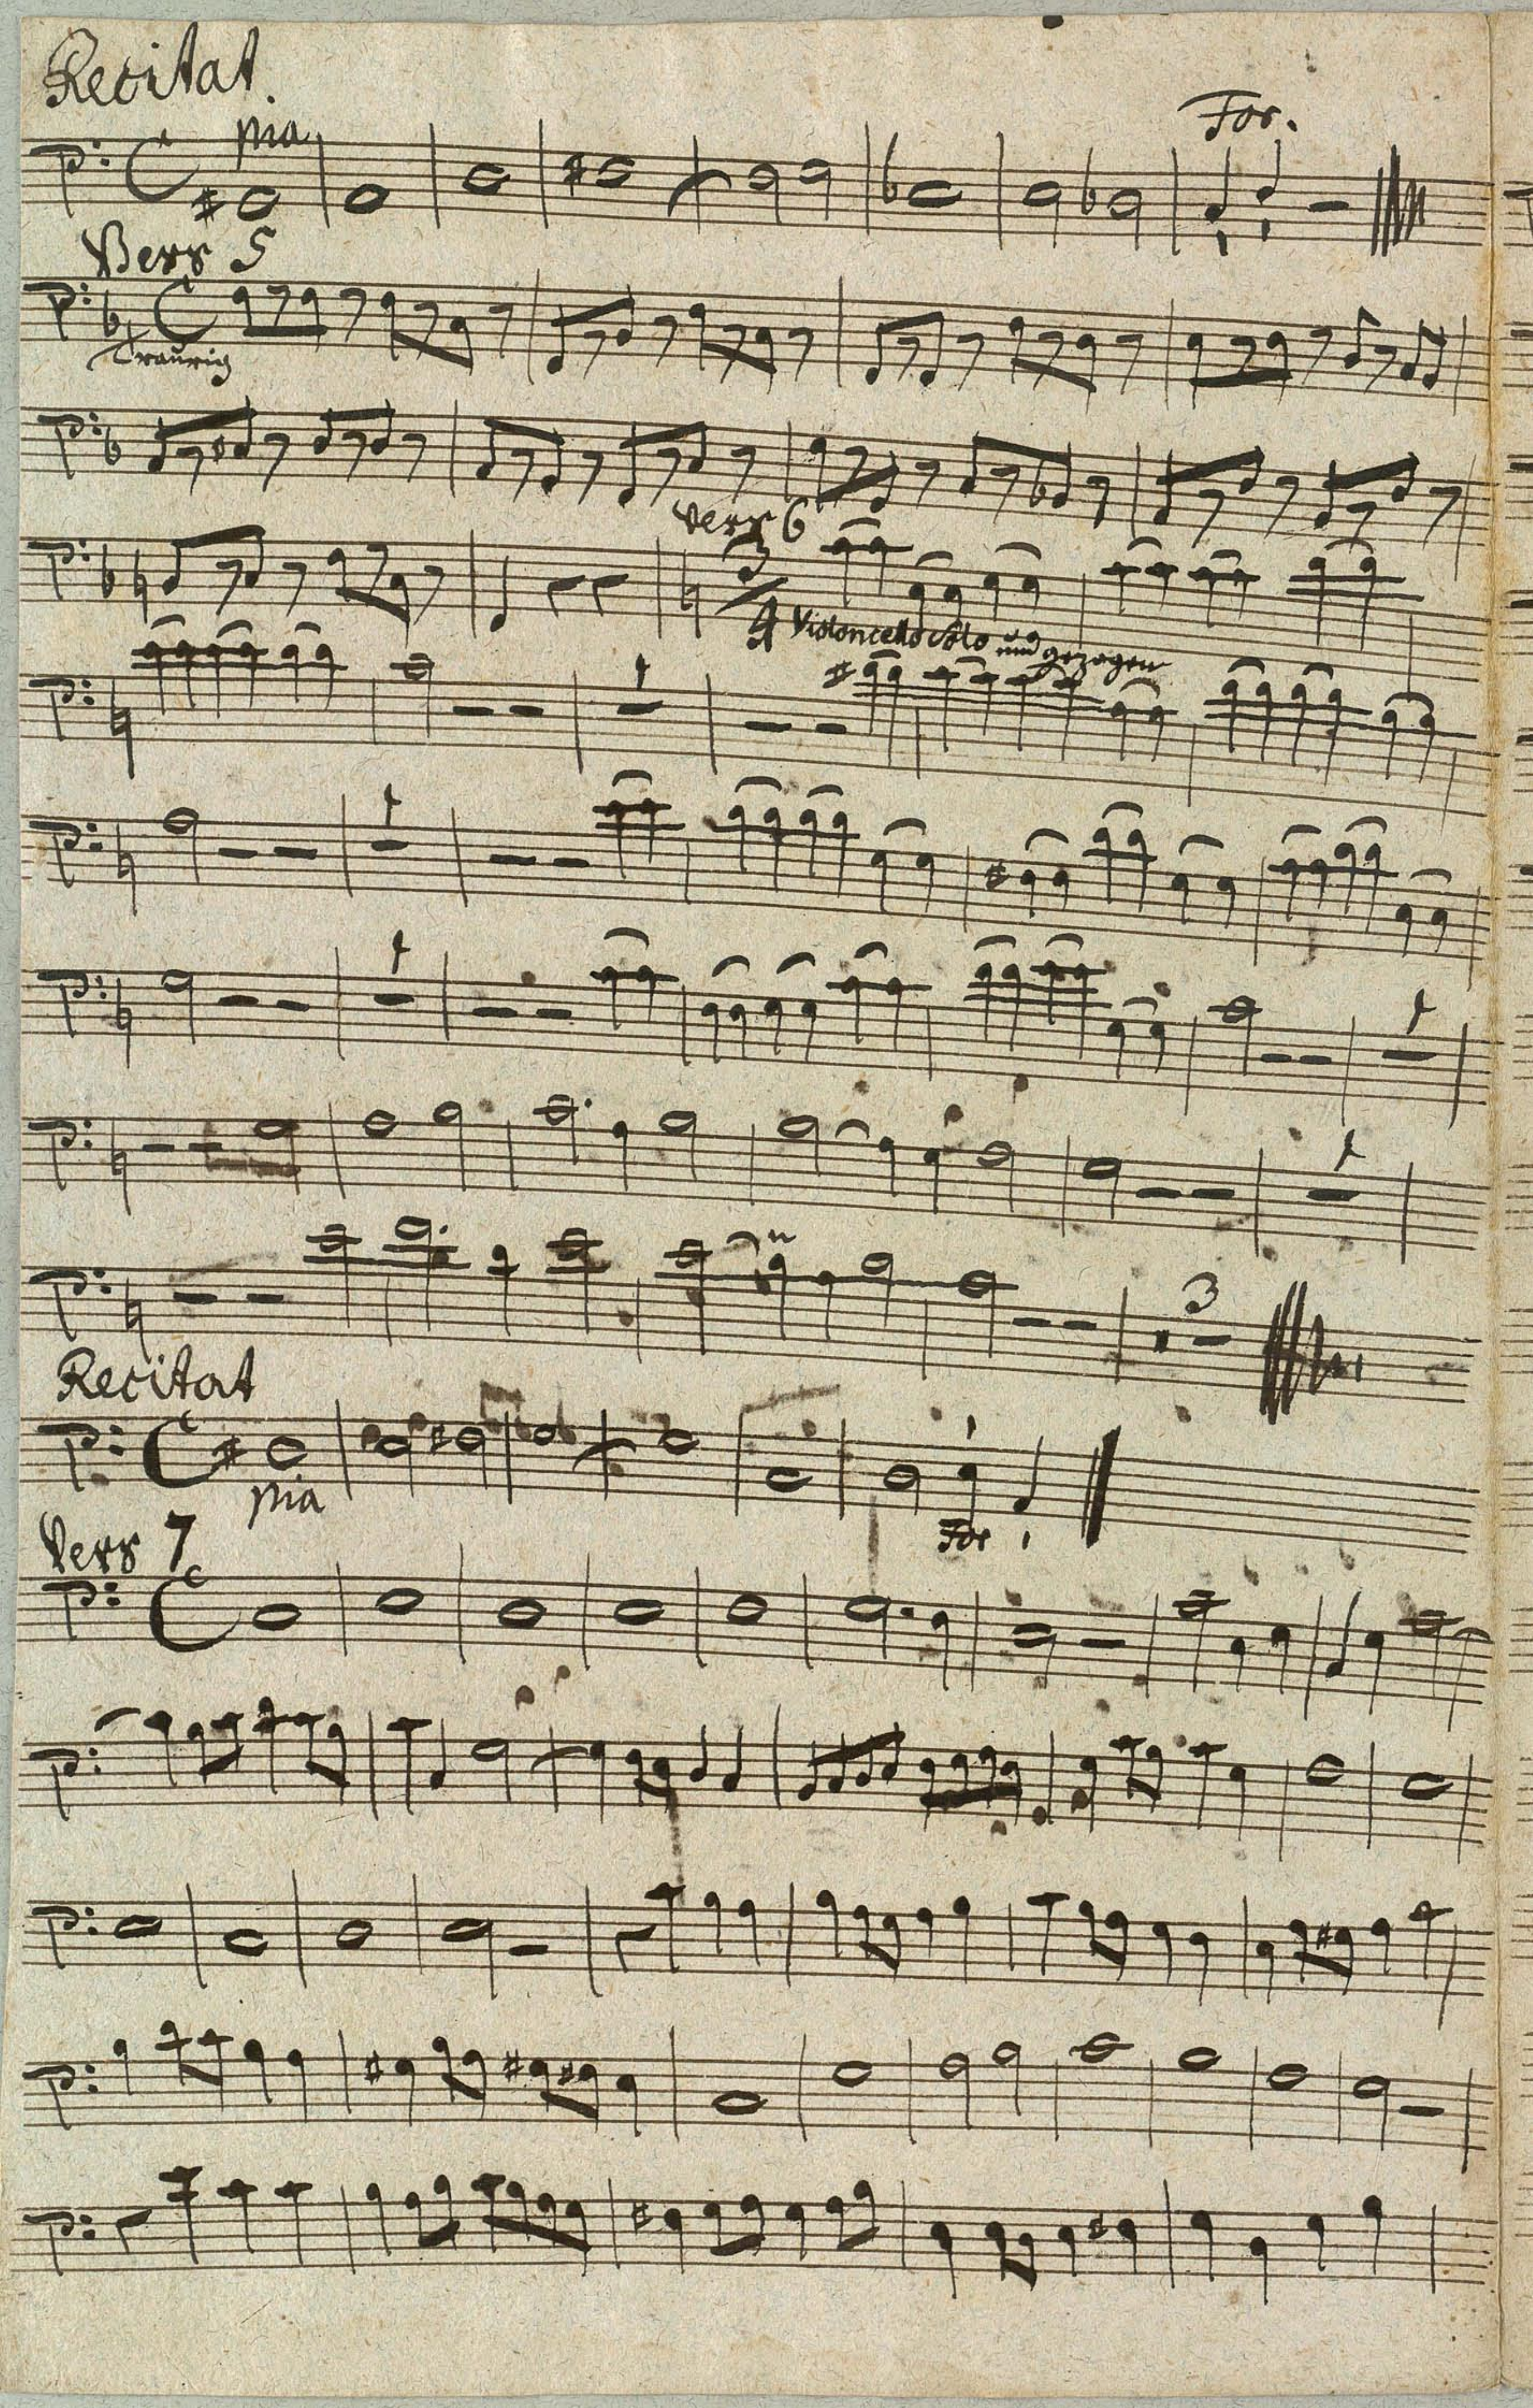 Recitat.
pia
For.
Vers 5
Traurig
Vers 6
3
4 Violoncello Solo und gezogen
3
Recitat
pia
For
Vers 7